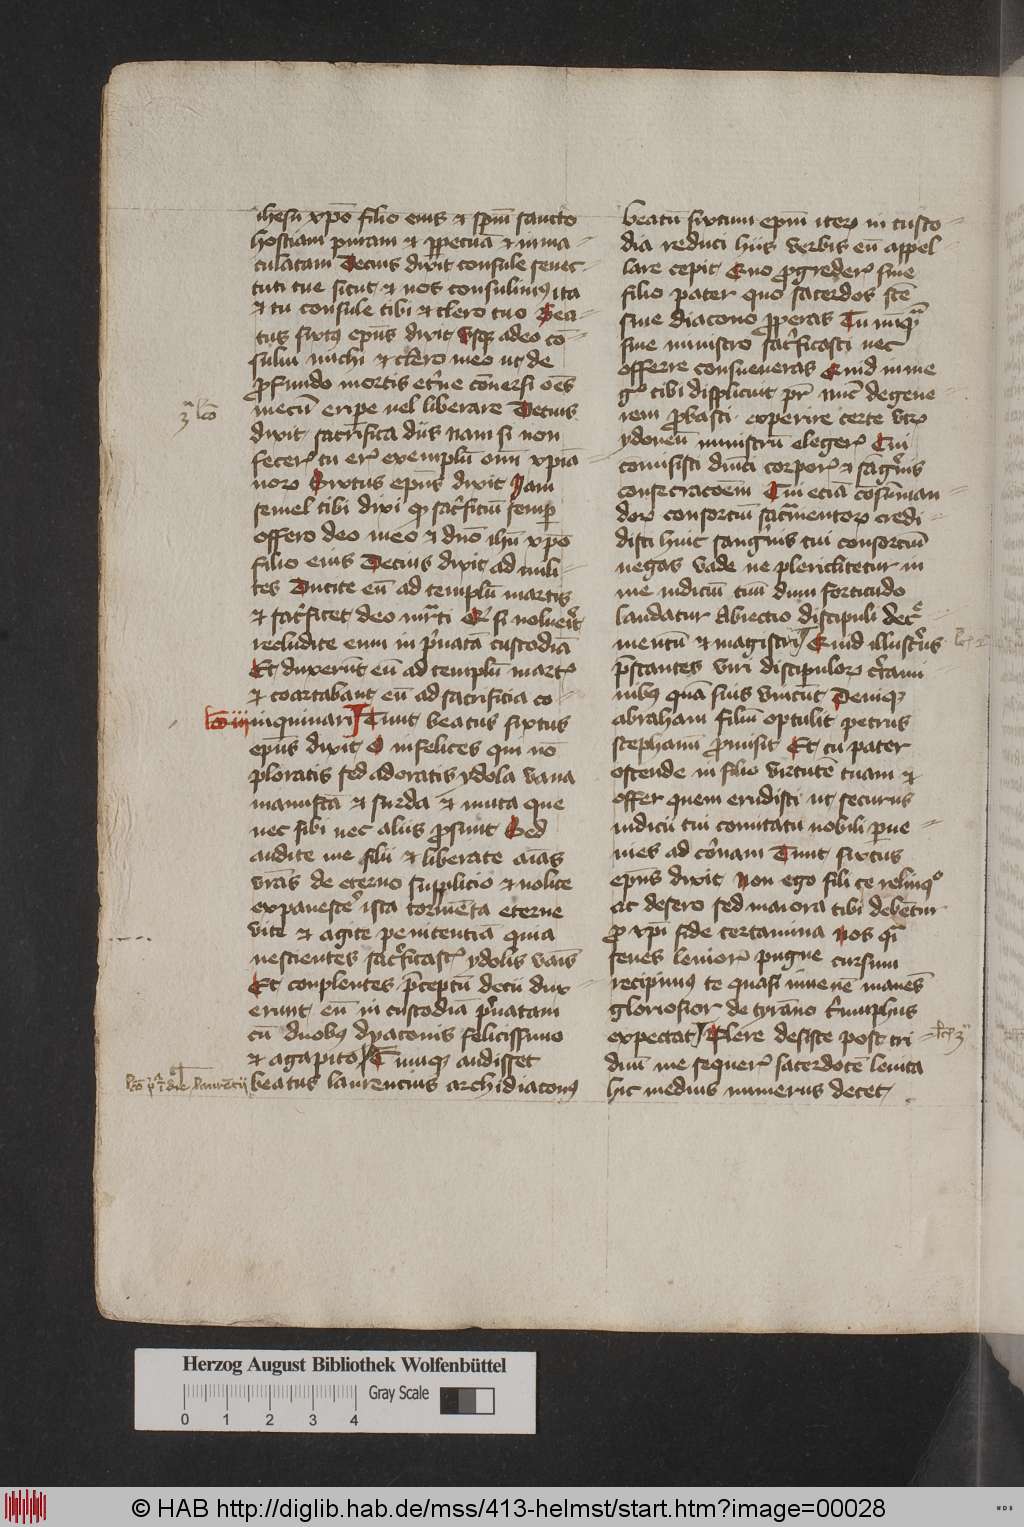 ihesu xpō filio eius et spm̄ sancto
hostiam puram et ꝑpetuā et inma-
culatam Decius dixit consule senec-
tuti tue sicut et nos consulimus ita
et tu consule tibi et clero tuo Bea-
tus sixtꝰ epūs dixit Usqꝫ adeo cō-
suluī michi et clero meo ut de
ꝓfundo mortis et̓ne cōuersi oēs
3ᵃ lc̄o
mecū eripe uel liberare Decius
dixit sacrifica diis nam si non
fecer̄ tu er̄ exemplū om̄ xpiā-
noꝝ Sixtus epūs dixit Iam
semel tibi dixi qꝫ sac̓ficiū semꝑ
offero deo meo et dn̄o ihū xpō
filio eius Decius dixit ad mili-
tes Ducite eū ad templū martis
et sac̓ficet deo mr̄ti Qd̓ si noluerit
recludite eum in p̓uatā custodiā
Et duxerūt eū ad templū mart̓
et coartabant eū ad sacrificia co-
lc̄o iii inquinari Tunc beatus sixtus
epūs dixit O infelices qui nō
ploratis sed adoratis ydola vana
manufc̄ā et surda et muta que
nec sibi nec aliis ꝓsunt Sed
audite me filii et liberate aīas
vrās de eterno supplicio et nolite
expauescer̄ ista tormēta eterne
vite et agite penitentiā quia
nescientes sac̓ficast̓ ydolis vanis
Et conplentes p̄ceptū decii dux-
erunt eū in custodiā p̓uatam
cū duobꝰ dyaconis felicissimo
et agapito Cumqꝫ audisset
beatus laurencius archidiaconꝰ
beatū sixtum epm̄ iteꝝ in custo-
dia reduci hiis verbis eū appel-
lare cepit Quo ꝓgreder̄ sine
filio pater quo sacerdos scē
sine diacono ꝓperas Tu nūqᵃ
sine ministro sac̓ficasti nec
offerre consueueras Quid in me
gͦ tibi displicuit pr̄ nūc degene-
rem ꝓbasti experire certe utꝝ
ydoneū ministrū eleger̄ Cui
comisisti dnīci corpor̄ et sang̓nis
consecracōem Cui eciā cōsūman-
doꝝ consorciū sacramentoꝝ credi-
disti huic sang̓nis tui consorciū
negas vade ne periclitetur in
me iudiciū tuū dum fortitudo
laudatur Abiectio discipuli det̓-
mentū et magistri Quid illustris
p̄stantes viri discipuloꝝ c̓tami-
nibꝰ quā suis vincūt Deniqꝫ
abraham filiū optulit petrus
stephanū p̄misit Et tu pater
ostende in filio virtutē tuam et
offer quem erudisti ut securus
iudicii tui comitatu nobili perue-
nies ad corōnam Tunc sixtus
epūs dixit Non ego fili te relinqͦ
ac desero sed maiora tibi debētur
ꝓ xpī fide certamina Nos qͣi
senes leuior̄ pugne cursum
recipimus te quasi iuuenē manēt
gloriosior de tyrāno t̓umphus
expectat Flere desiste post tri-
duū me sequer̄ sacerdotē leuita
hic medius numerus decet
Herzog August Bibliothek Wolfenbüttel
Gray Scale
0 1 2 3 4
© HAB http://diglib.hab.de/mss/413-helmst/start.htm?image=00028
WDB